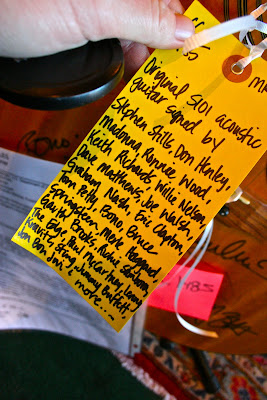 55
MA
Original SO1 acoustic
Guitar signed by
Stephen Stills, Don Henley,
Madonna, Ronnie Wood,
Keith Richards, Willie Nelson,
Dave Matthews, Joe Walsh,
Graham Nash, Eric Clapton
Tom Petty, Bono, Bruce
Springsteen, Mark
Garth Brooks, Richie
The Edge, Paul McCartney,
Bon Jovi, Sting, Jimmy Buffett,
more...
485
Bono